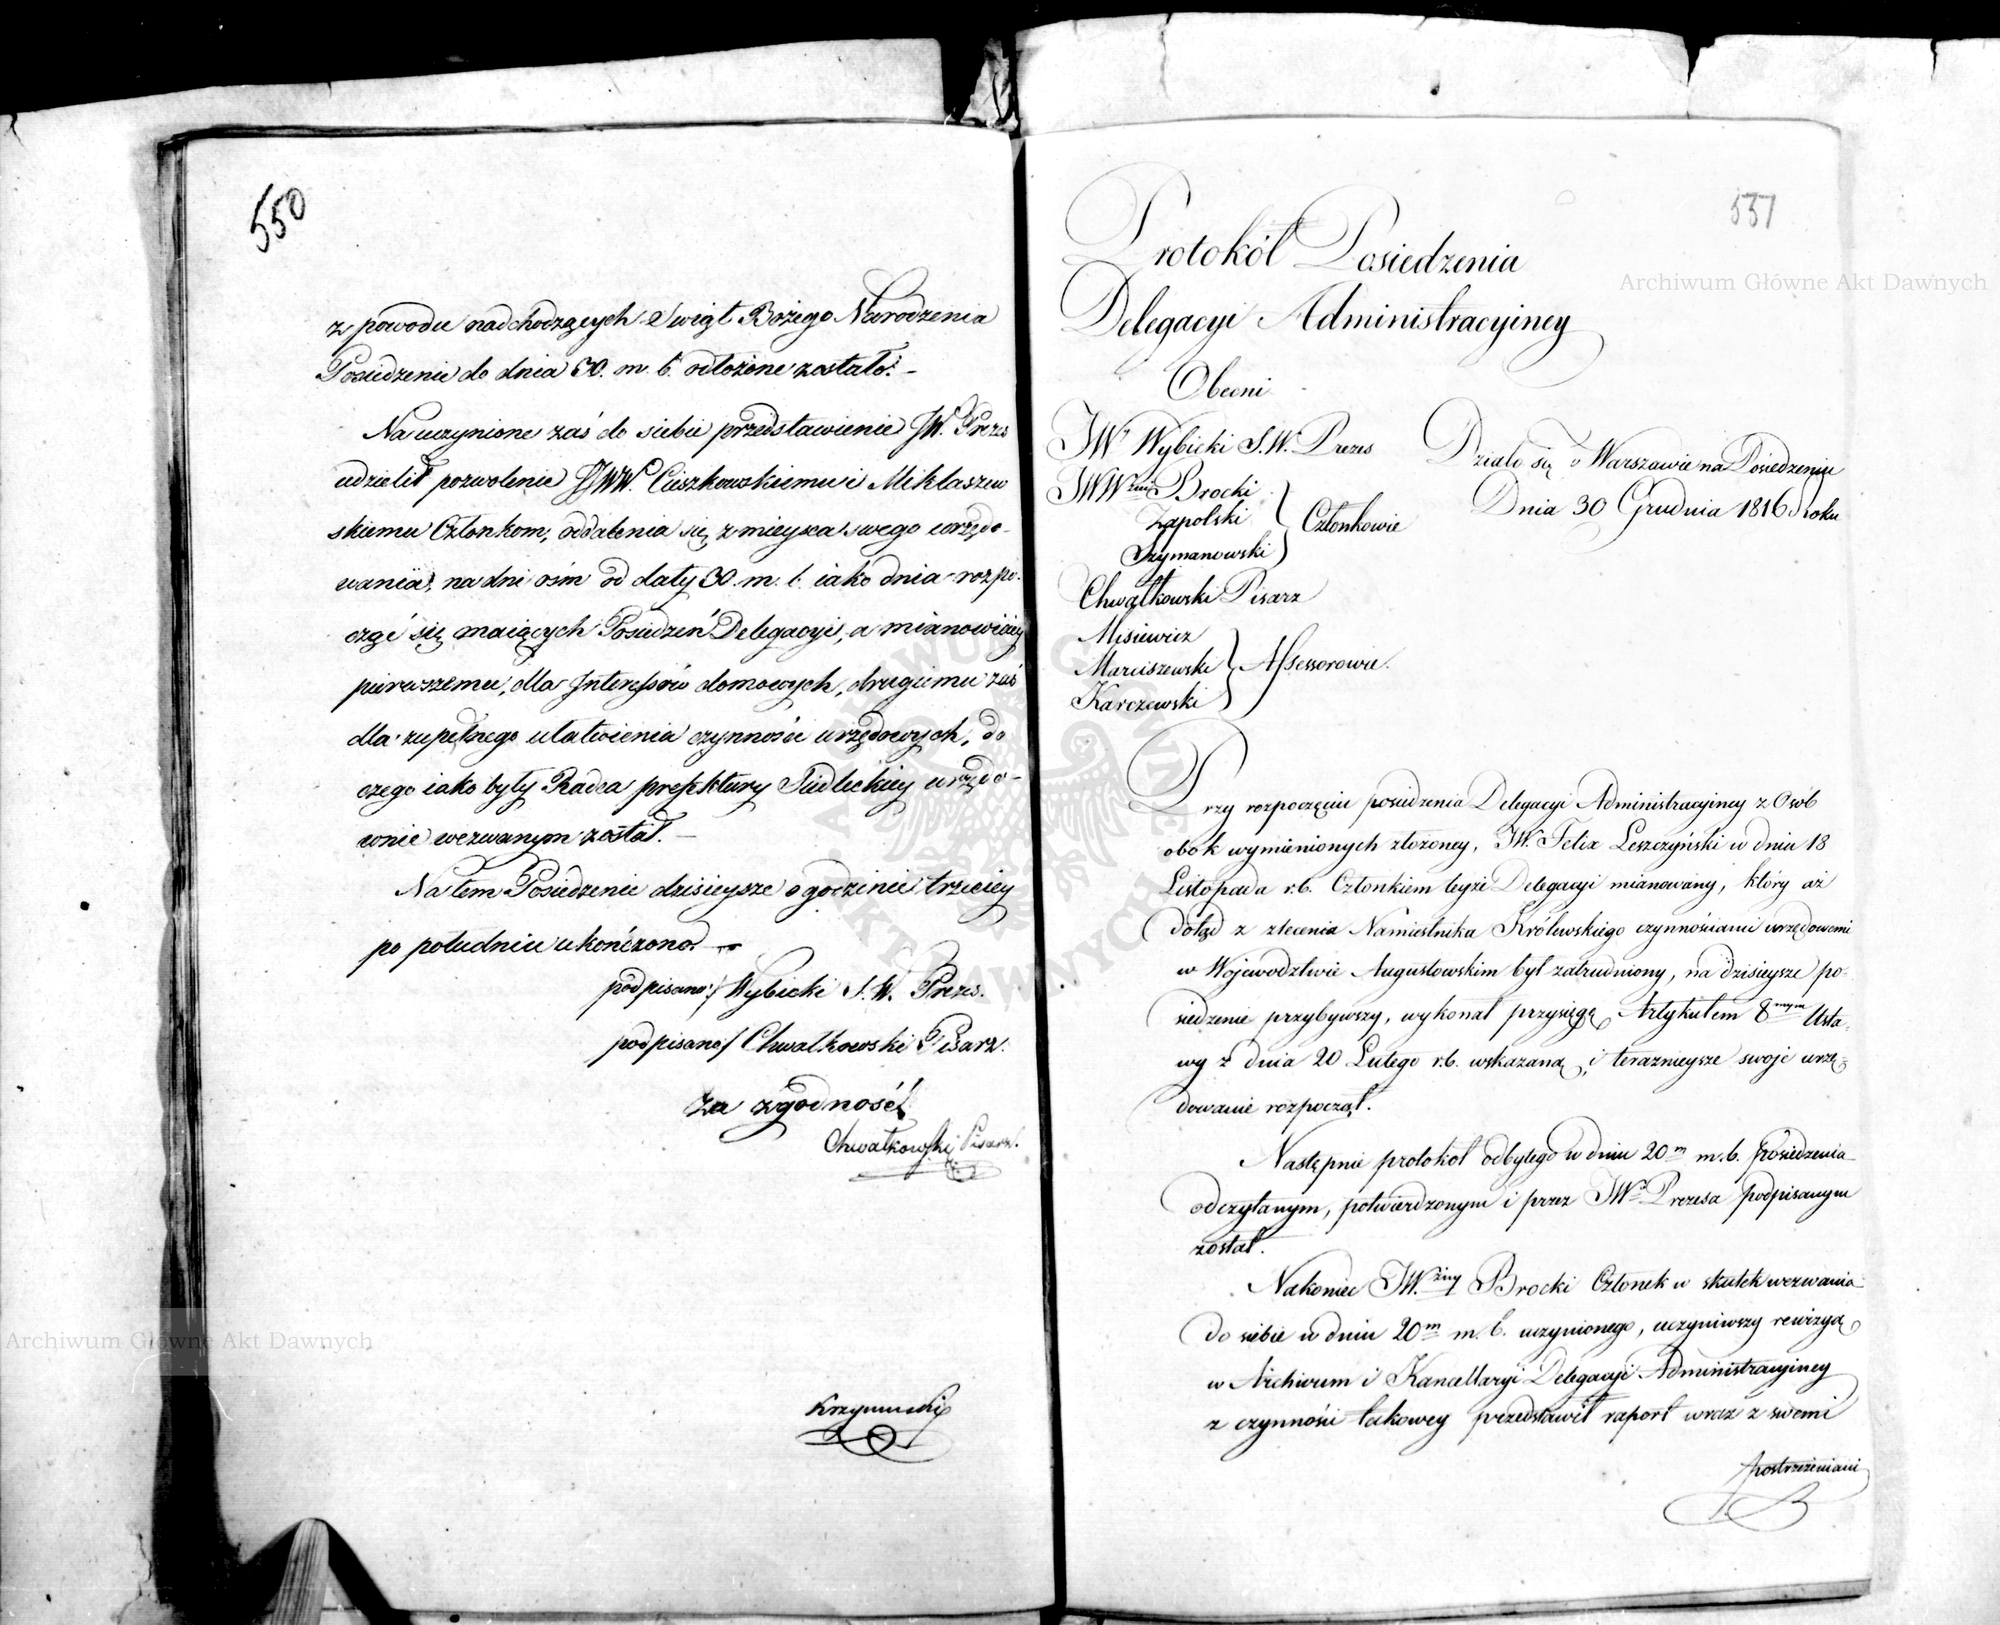 550
z powodu nadchodzących Swiąt Bożego Narodzenia
Posiedzenie do dnia 30. m. b. odłożone zostało. –
Na uczynione zaś do siebie przedstawienie JW. Prezes
udzielił pozwolenie JJWW. Cieszkowskiemu i Mikłaszew
skiemu Członkom, oddalenia się z mieysca swego urzędo-
wania, na dni ośm od daty 30. m. b. iako dnia rozpo-
cząć się maiących Posiedzeń Delegacyi, a mianowiciey
pierwszemu, dla Interessów domowych, drugiemu zaś
dla zupełnego ułatwienia czynności urzędowych, do
czego iako były Radca prefektury Siedleckiey urzędo-
wnie wezwanym został. –
Na tem Posiedzenie dzisieysze o godzinie trzeciey
po południu ukończono. –
podpisano:/ Wybicki S. W. Prezes.
podpisano/ Chwalkowski Pisarz.
Za zgodność
Chwałkowski Pisarz.
Krzymuski
Archiwum Główne Akt Dawnych
551
Archiwum Główne Akt Dawnych
Protokół Posiedzenia
Delegacyi Administracyiney
Obecni
JW. Wybicki S. W. Prezes
JWWżni Brocki
Zapolski
Szymanowski
Członkowie
Chwałkowski Pisarz
Misiewicz
Marciszewski
Karczewski
Assessorowie.
Działo się w Warszawie na Posiedzeniu
Dnia 30 Grudnia 1816 roku
Przy rozpoczęciu posiedzenia Delegacyi Administracyiney z Osób
obok wymienionych złożoney, JW. Felix Leszczyński w dniu 18
Listopada r.b. Członkiem teyże Delegacyi mianowany, który aż
dotąd z zlecenia Namiestnika Królewskiego czynnościami urzędowemi
w Wojewodztwie Augustowskim był zatrudniony, na dzisieysze po-
siedzenie przybywszy, wykonał przysięgę Artykułem 8mym Usta-
wy z dnia 20 Lutego r.b. wskazaną, i teraznieysze swoje urzę-
dowanie rozpoczął.
Następnie protokół odbytego w dniu 20m m.b. Posiedzenia
odczytanym, potwierdzonym i przez JWo Prezesa podpisanym
został.
Nakoniec JW.żny Brocki Członek w skutek wezwania
do siebie w dniu 20m m. b. uczynionego, uczyniwszy rewizyą
w Archiwum i Kancellaryi Delegacyi Administracyiney
z czynności takowey przedstawił raport wraz z swemi
postrzeżeniami
ARCHIWUM GŁÓWNE
AKT DAWNYCH